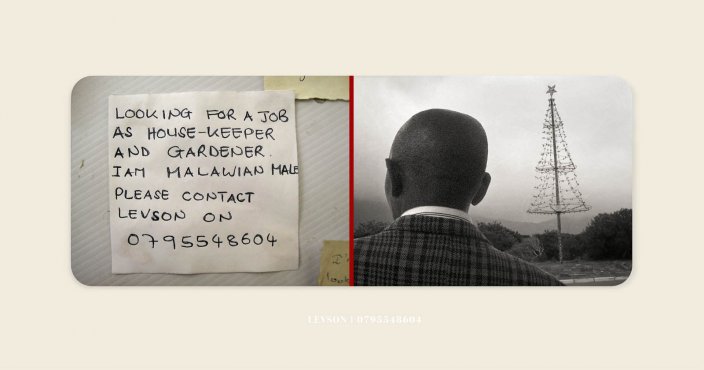 LOOKING FOR A JOB
AS HOUSE-KEEPER
AND GARDENER.
I AM MALAWIAN MALE
PLEASE CONTACT
LEVSON ON
0795548604
LEVSON | 0795548604